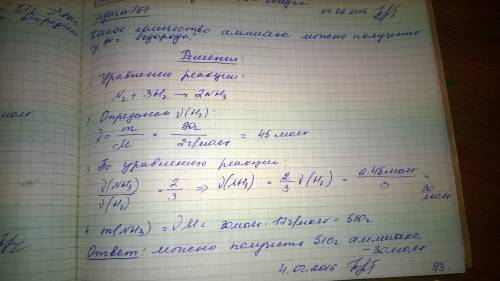 Задача №7
04.02.2016
Какое количество аммиака можно получить
из 90г водорода?
Решение:
1. Уравнение реакции:
N₂ + 3H₂ → 2NH₃
2. Определяем ν(H₂):
ν = m/M = 90г/2г/моль = 45 моль
3. По уравнению реакции:
ν(NH₃)/ν(H₂) = 2/3 ⇒ ν(NH₃) = 2/3 ν(H₂) = 2·45моль/3 = 30 моль
4. m(NH₃) = νM = 30моль · 17г/моль = 510г
Ответ: можно получить 510г аммиака
- 30моль
4.02.2016
93.